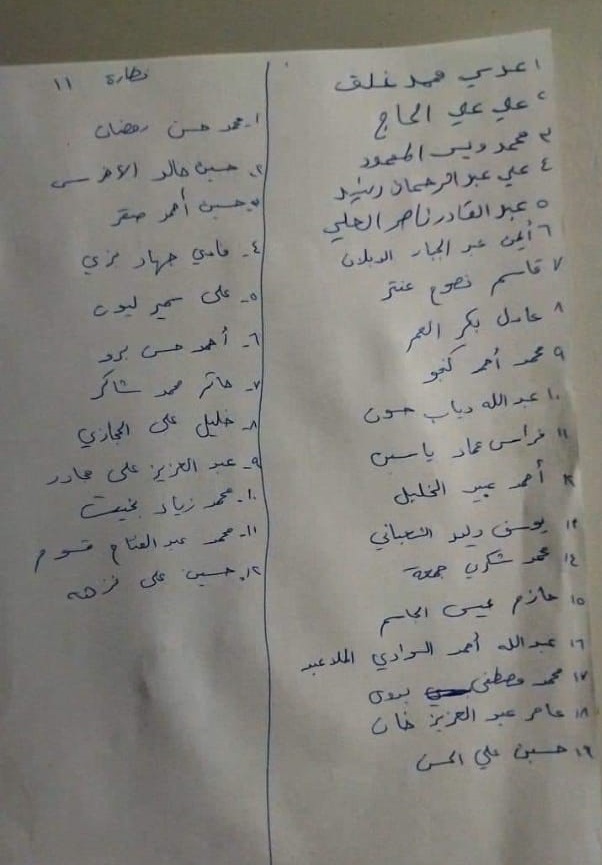 ١ عدي محمد خلف
٢ علي علي الحاج
٣ محمد ويس المحمود
٤ علي عبد الرحمان رشيد
٥ عبد القادر ناصر العلي
٦ أيمن عبد الجبار الدبلان
٧ قاسم نصوح عنتر
٨ عادل بكر العمر
٩ محمد أحمد كنجو
١٠ عبد الله دياب حسون
١١ فراس عماد ياسين
١٢ أحمد عبيد الخليل
١٣ يوسف وليد الشعباني
١٤ محمد شكري جمعة
١٥ حازم عيسى الجاسم
١٦ عبد الله أحمد السوادي الملا عبد
١٧ محمد مصطفى بدوي
١٨ عامر عبد العزيز خان
١٩ حسين علي الحسن
نظارة ١١
١. محمد حسن رمضان
٢. حسين خالد الأخرس
٣. حسين أحمد صقر
٤- فادي جهاد
٥- علي سمير ليون
٦- أحمد حسن برو
٧- حاتم محمد شاكر
٨- خليل علي الحجازي
٩- عبد العزيز علي
١٠- محمد زياد بخيت
١١- محمد عبد الفتاح قسوم
١٢. حسين علي نزهه